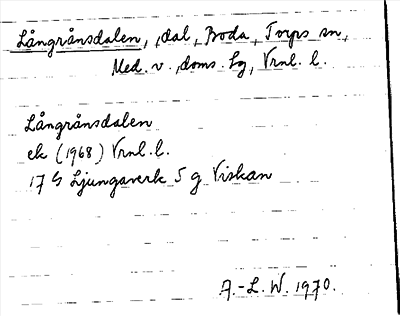 Långrånsdalen, dal, Boda, Torps sn,
Med. v. doms. hg, Vrnl. l.
Långrånsdalen
ek (1968) Vrnl. l.
17 G Ljungaverk 5 g Viskan
A.-L. W. 1970.